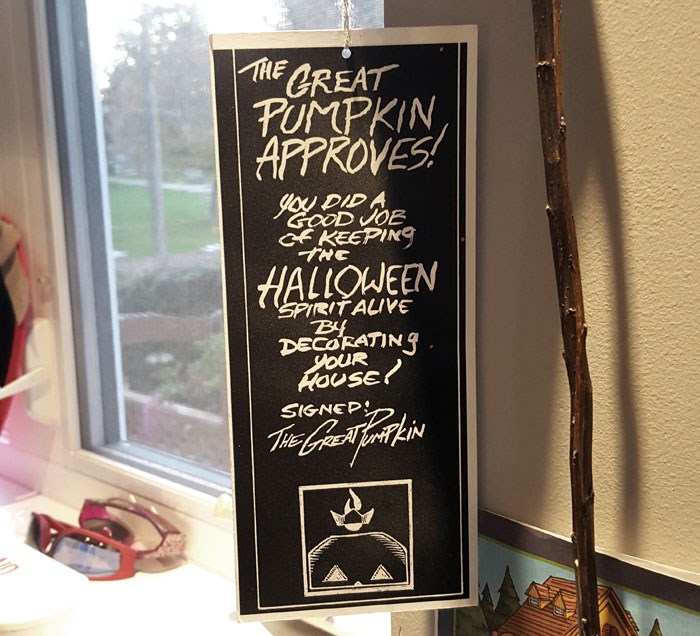 THE GREAT
PUMPKIN
APPROVES!
YOU DID A
GOOD JOB
of KEEPING
THE
HALLOWEEN
SPIRIT ALIVE
BY
DECORATING
YOUR
HOUSE!
SIGNED:
THE GREAT PUMPKIN